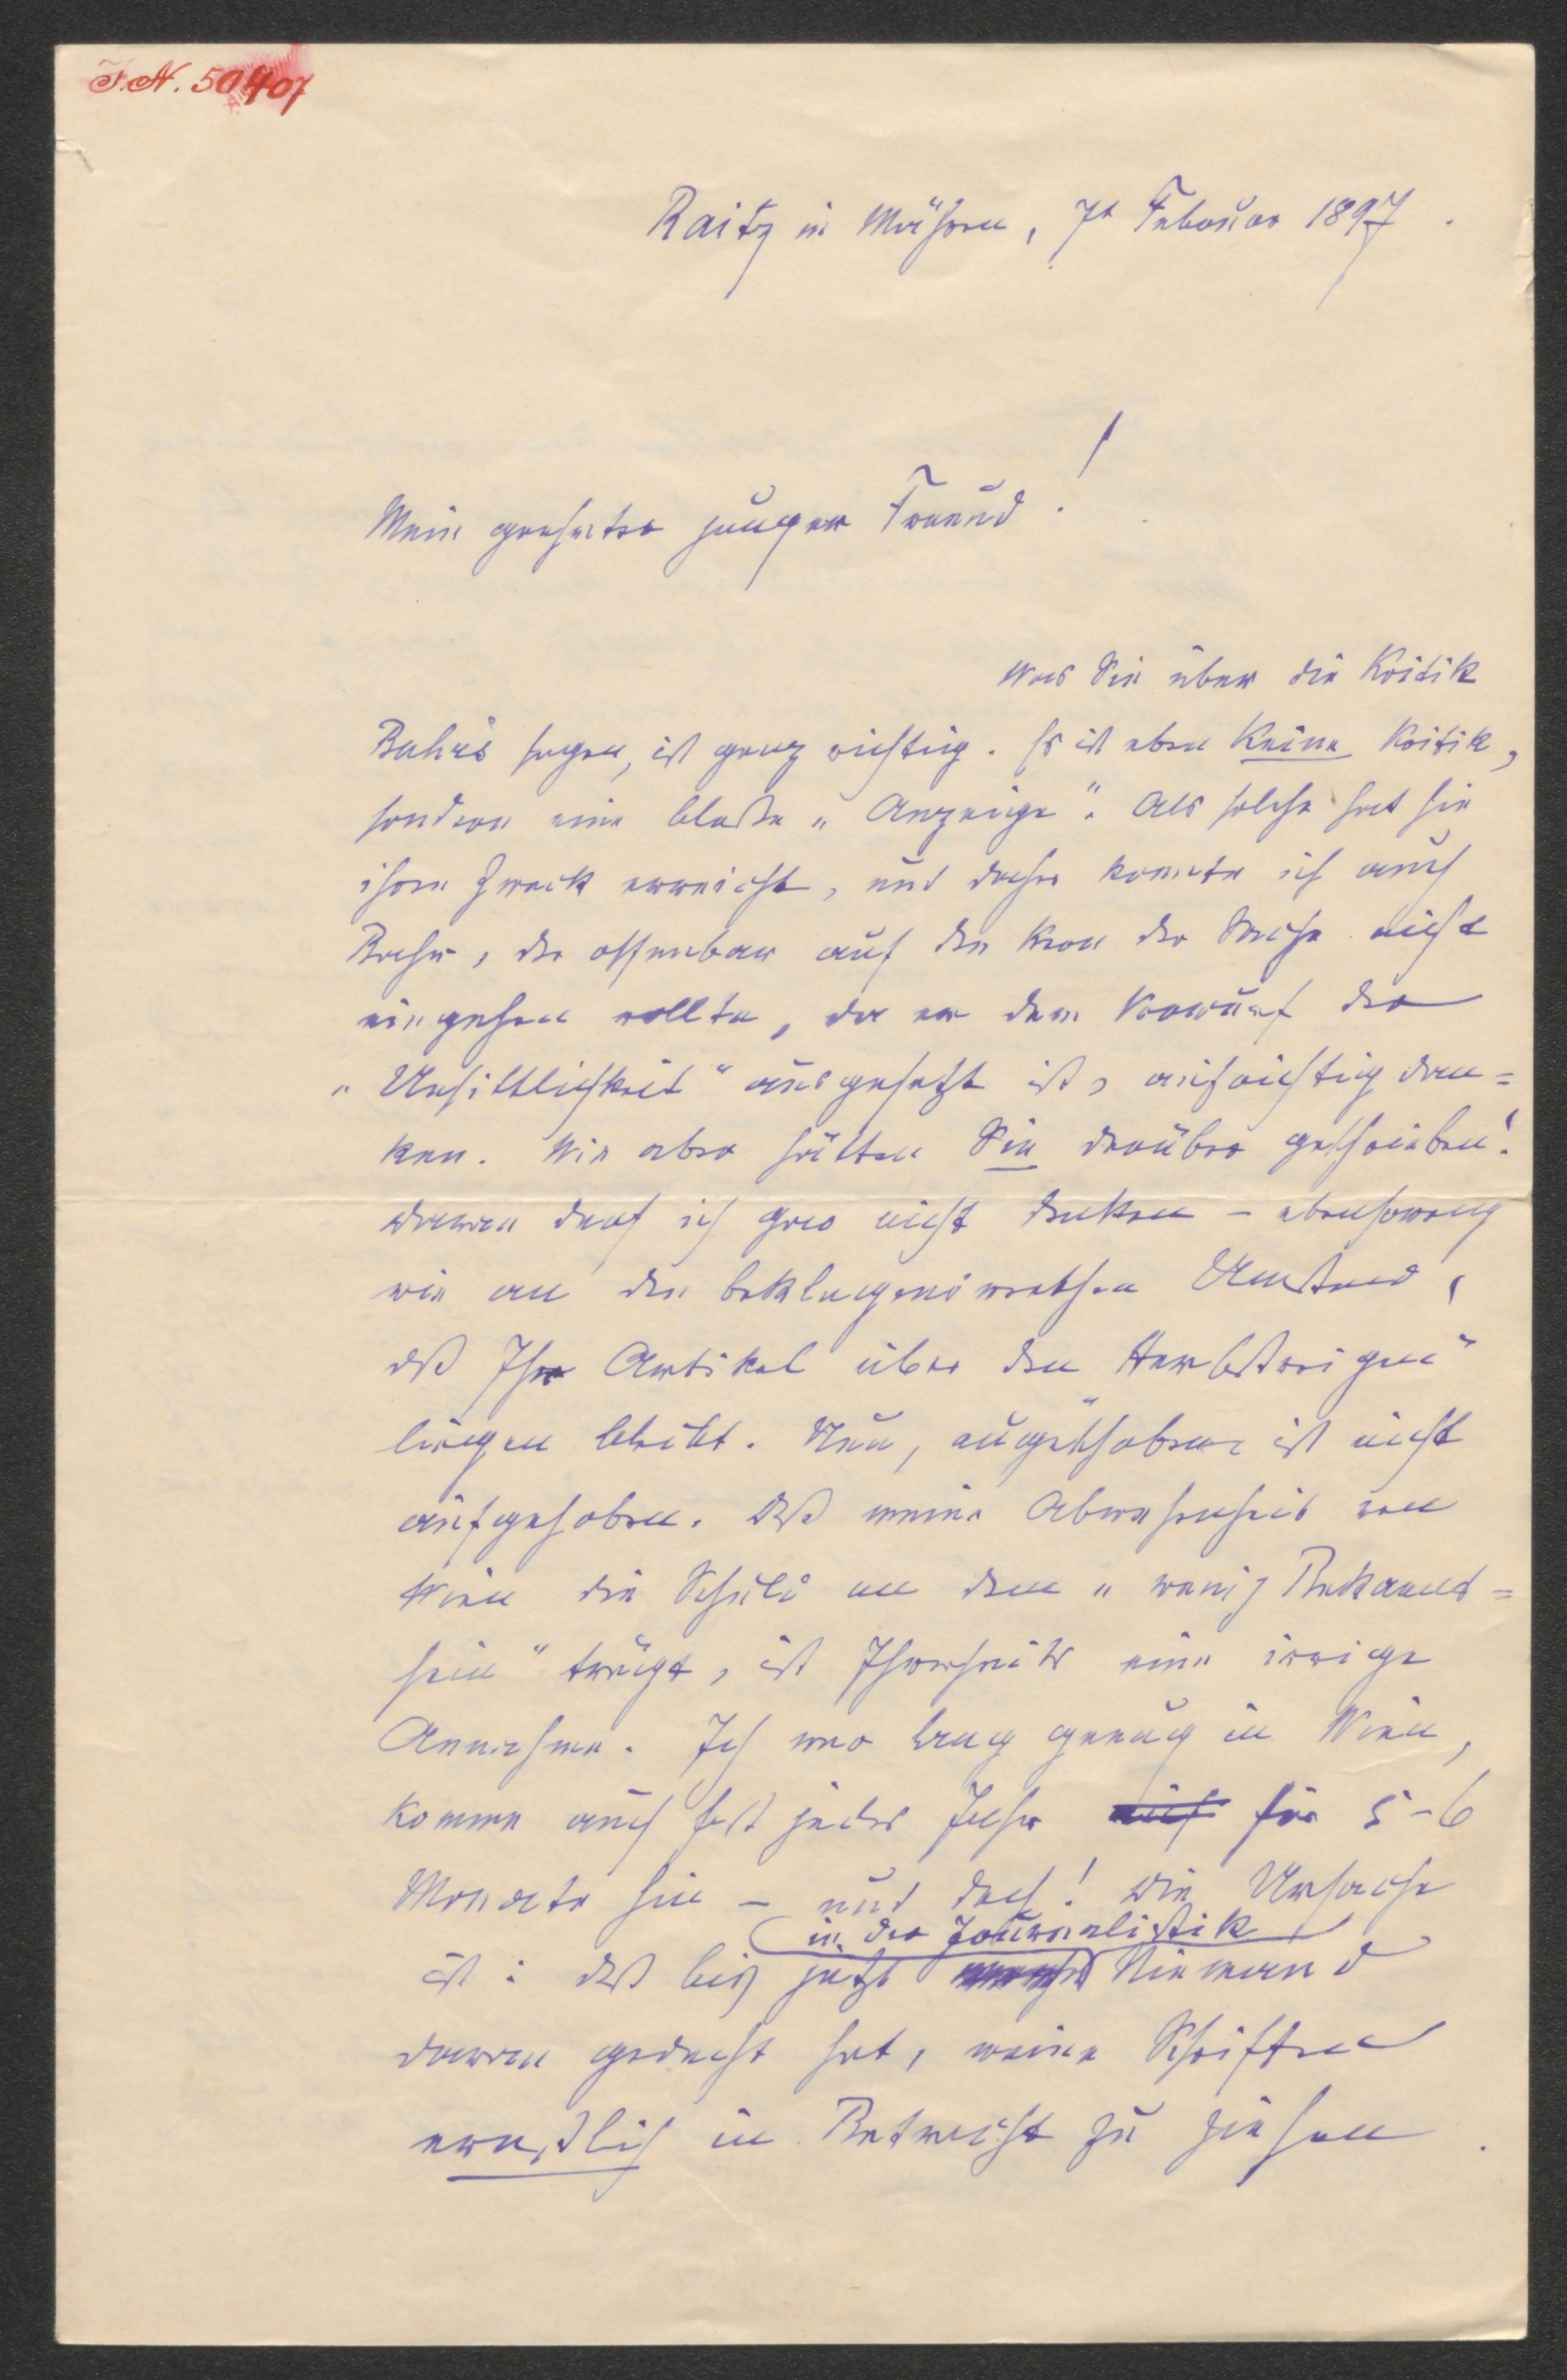 I.N. 50407
Raitz in Mähren, 7t Februar 1897.
Mein geehrter junger Freund!
Was Sie über die Kritik
Bahrs sagen, ist ganz richtig. Es ist eben keine Kritik,
sondern eine bloße „Anzeige“. Als solche hat sie
ihren Zweck erreicht, und daher konnte ich auch
Bahr, der offenbar auf den Kern der Sache nicht
eingehen wollte, da er dem Vorwurf der
„Unsittlichkeit“ ausgesetzt ist, aufrichtig dan=
ken. Wie aber hätten Sie darüber geschrieben!
daran darf ich gar nicht denken – ebensowenig
wie an den beklagenswerthen Umstand,
daß Ihr Artikel über den Herbstreigen“
liegen bleibt. Nun, aufgeschoben ist nicht
aufgehoben. Daß meine Abwesenheit von
Wien die Schuld an dem „wenig Bekannt=
sein“ trägt, ist Ihrerseits eine irrige
Annahme. Ich war lang genug in Wien,
komme auch fast jedes Jahr auf für 5–6
Monate hin – und doch! Die Ursache
in der Journalistik
ist: daß bis jetzt Niemand
daran gedacht hat, meine Schriften
ernstlich in Betracht zu ziehen.